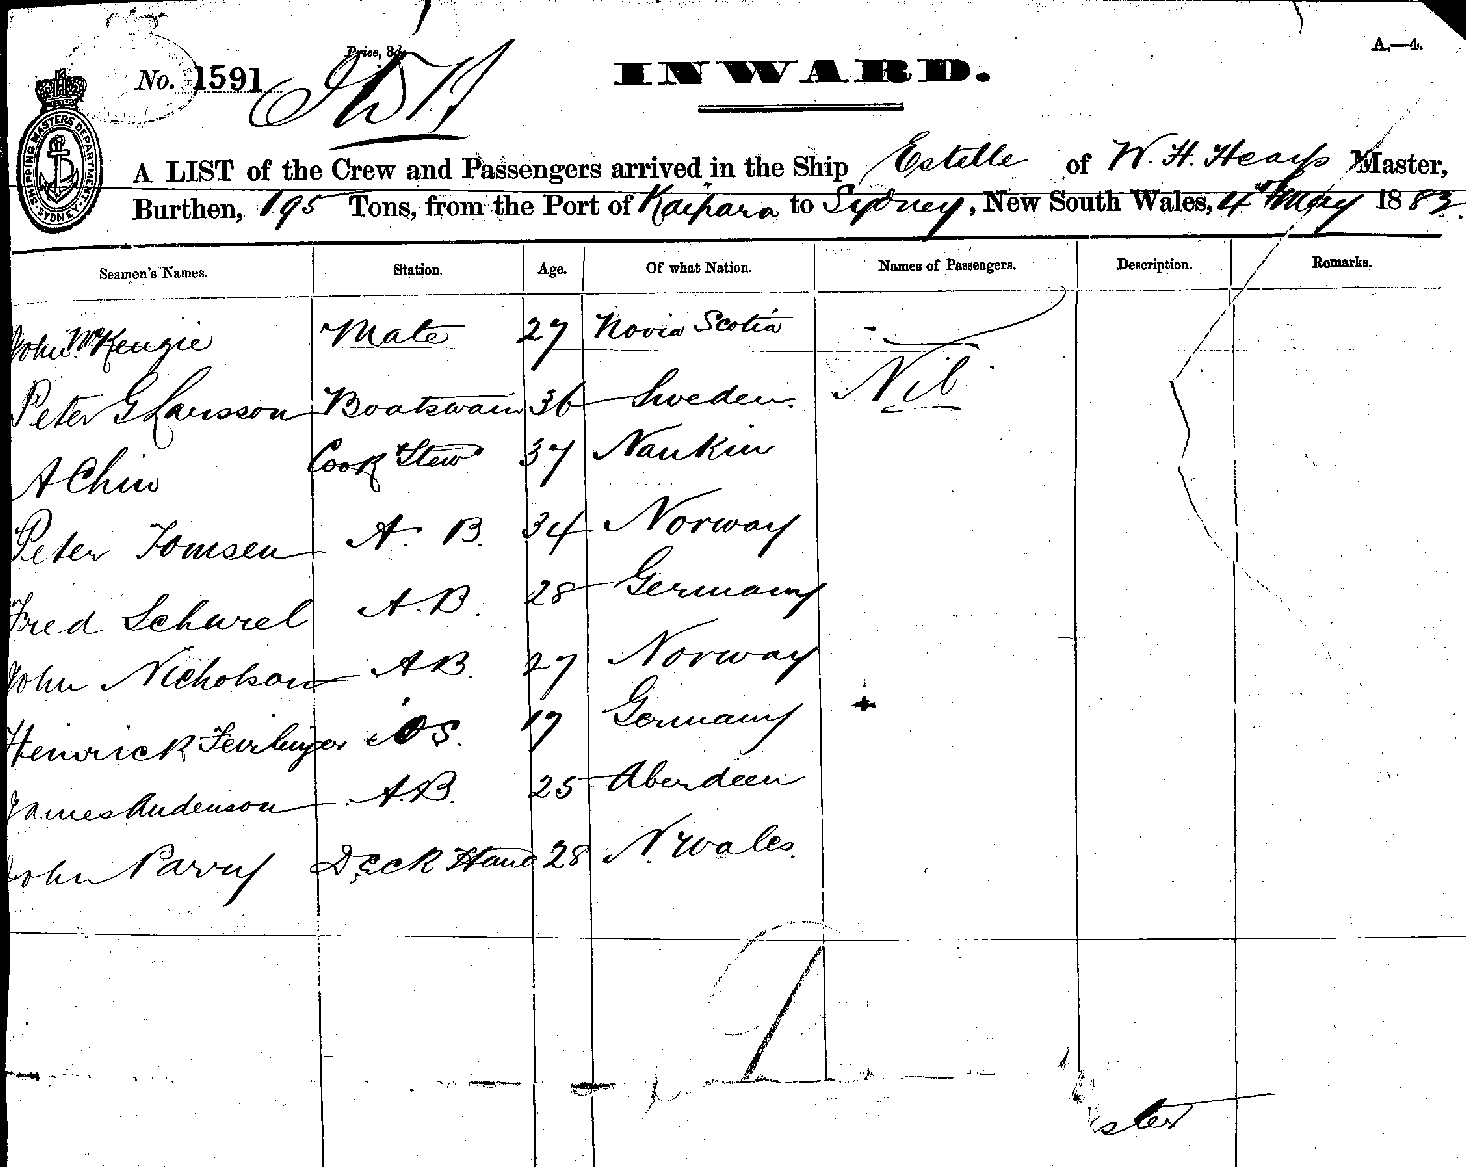 A.—4.
Price, 3d.
No. 1591
INWARD.
SHIPPING MASTERS DEPARTMENT SYDNEY
A LIST of the Crew and Passengers arrived in the Ship Estelle of W. H. Heaps Master,
Burthen, 195 Tons, from the Port of Kaipara to Sydney, New South Wales, 4th May 1883.
Seamen's Names. Station. Age. Of what Nation. Names of Passengers. Description. Remarks.
John McKenzie Mate 27 Novia Scotia
Nil
Peter G Larsson Boatswain 36 Sweden
A Chin Cook Stew 37 Nankin
Peter Tomsen A. B. 34 Norway
Fred A.B. 28 Germany
John Nicholson A B. 27 Norway
Henrick O S. 17 Germany
James Anderson A.B. 25 Aberdeen
John Parry Deck Hand 28 N. Wales.